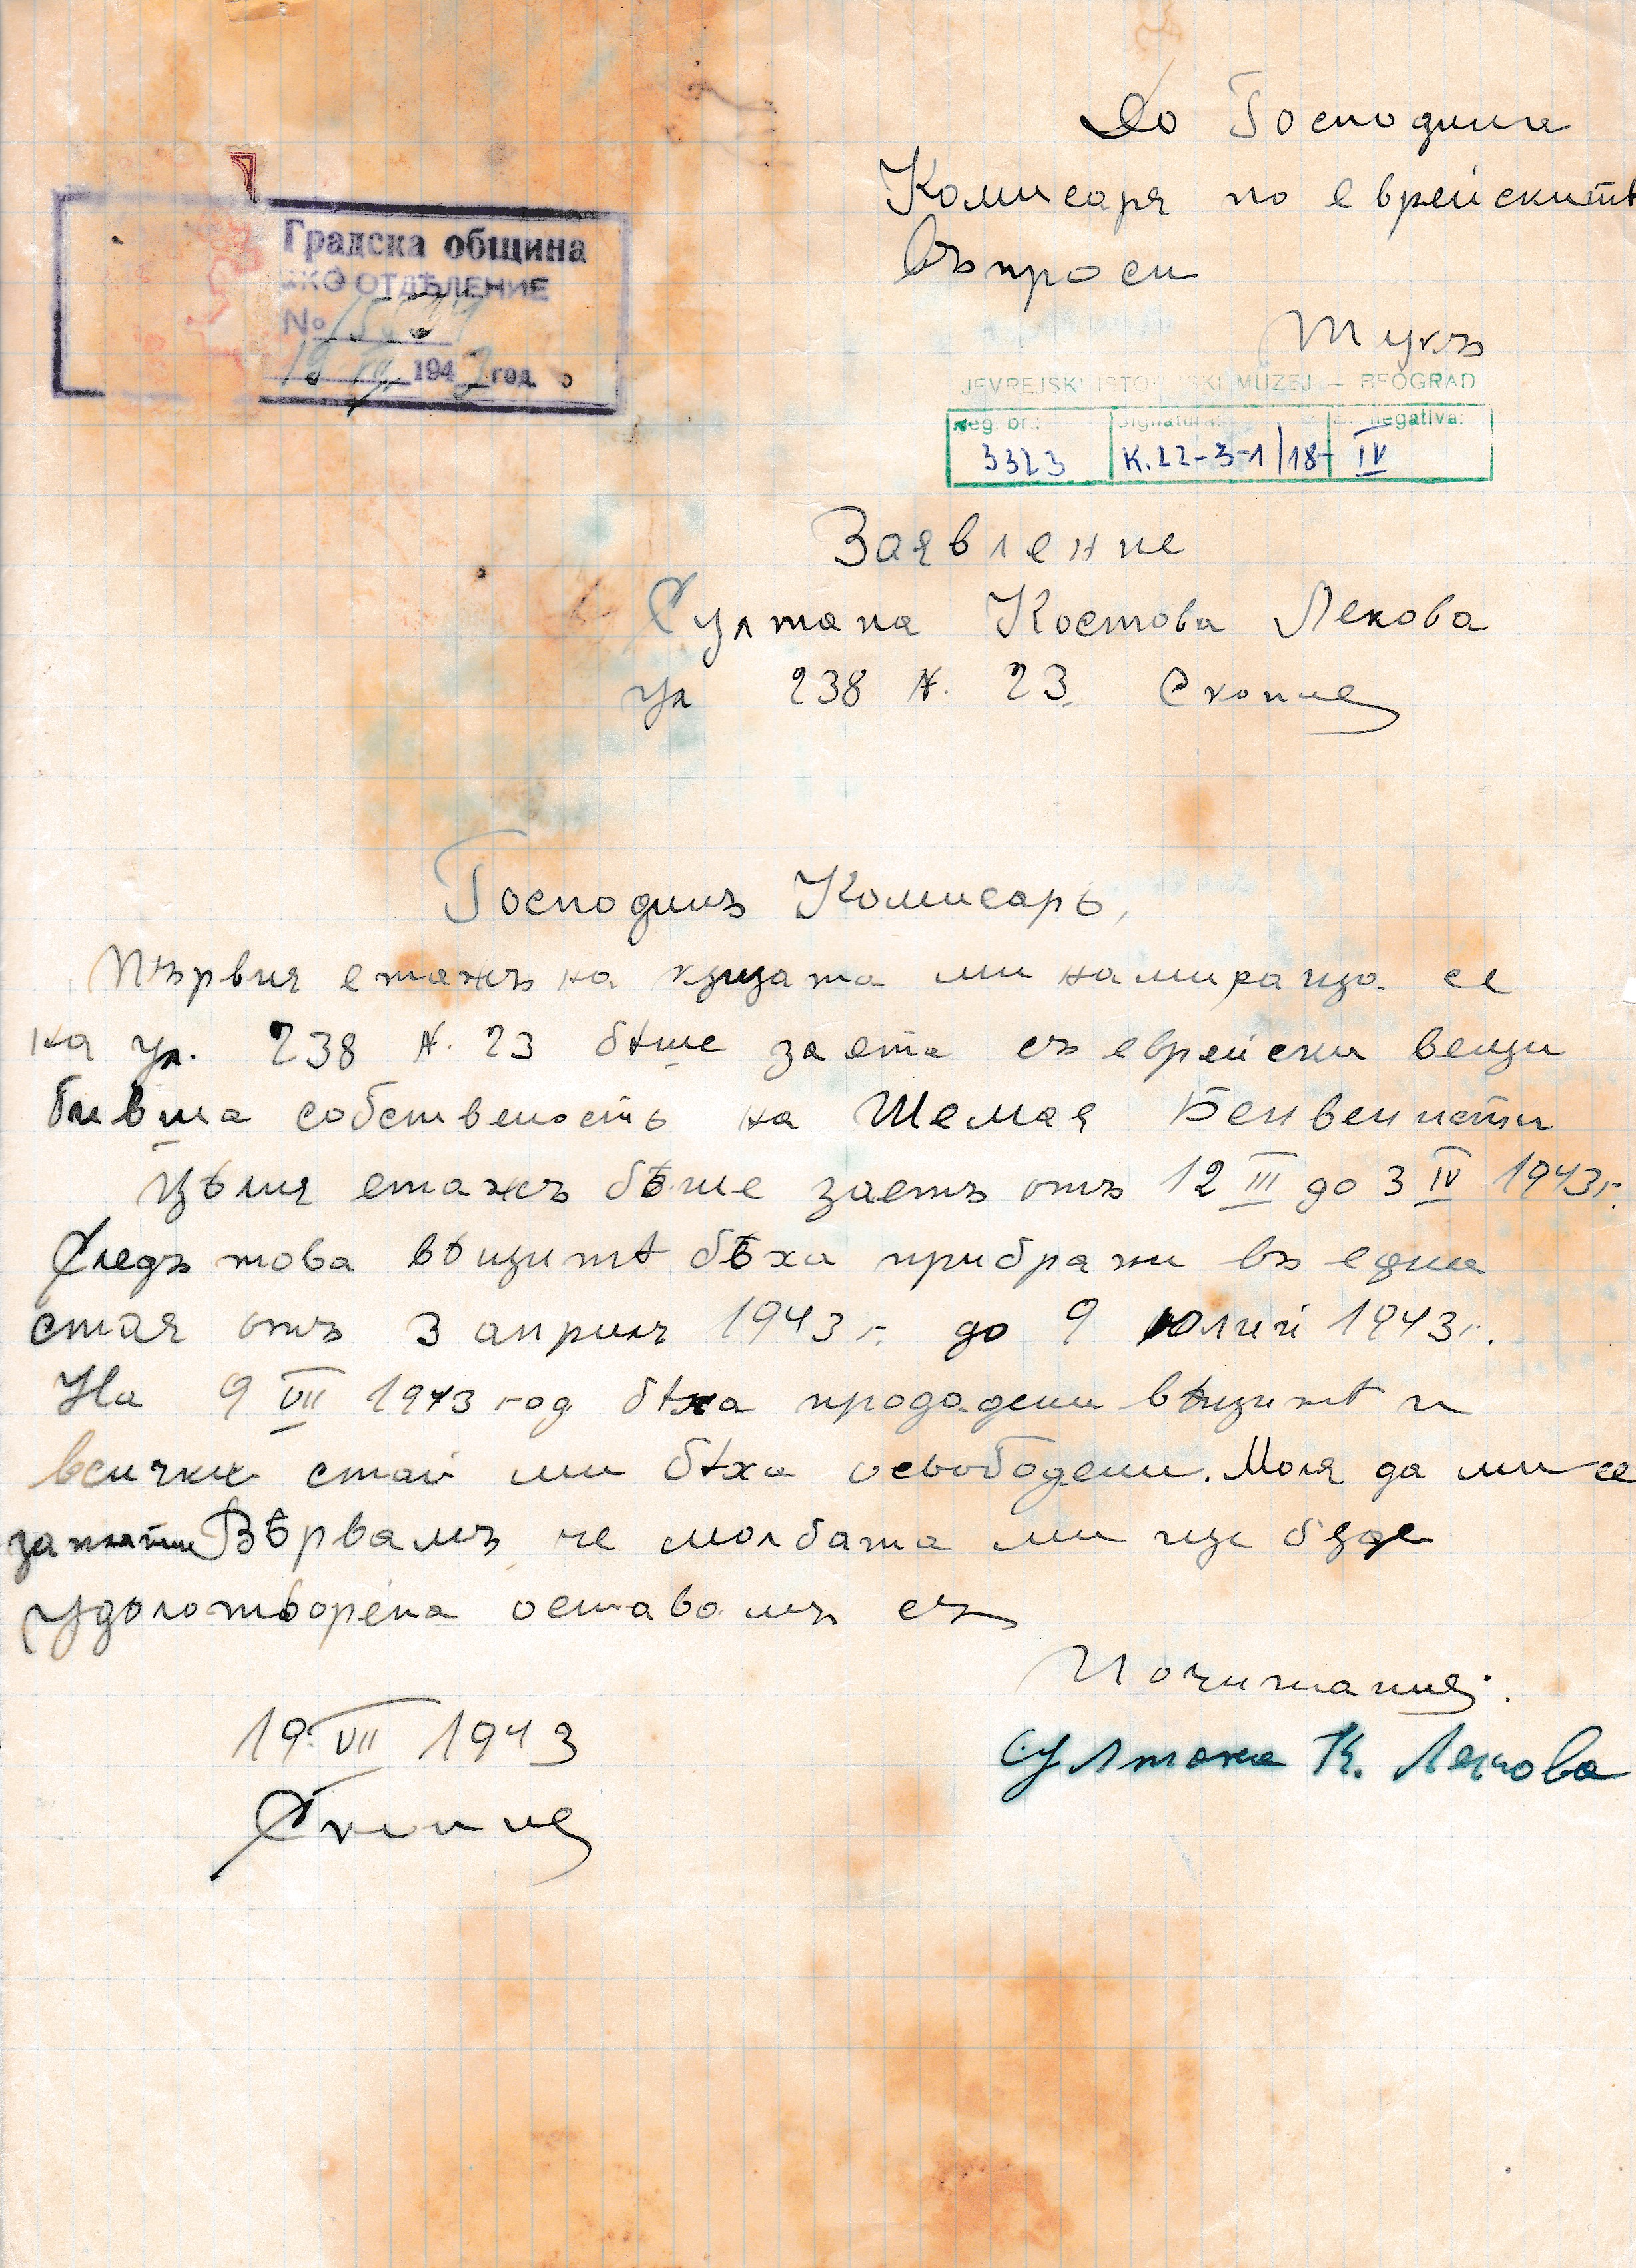 До Господина
Комисаря по еврейскитѣ
Въпроси
Тукъ
Градска община
СКО ОТДѢЛЕНИЕ
No
19 VII 1943 год.
JEVREJSKI ISTORIJSKI MUZEJ — BEOGRAD
Reg. br.: Signatura: Br. negativa:
3323 K.22-3-1/18- IV
Заявление
Султана Костова Лекова
ул 238 N. 23 Скопие
Господинъ Комисарь,
Първия етажъ на къщата ми намираща се
на ул. 238 N. 23 бѣше заета съ еврейски вещи
бивша собственость на Шемая Бенвенисти
Цѣлия етажъ бѣше заетъ отъ 12 III до 3 IV 1943 г.
Следъ това вѣщитѣ бѣха прибрани въ една
стая отъ 3 априлъ 1943 г. до 9 юлий 1943 г.
На 9 VII 1943 год бѣха продадени вѣщитѣ и
всички стаи ми бѣха освободени. Моля да ми се
заплати Вѣрвамъ че молбата ми ще бѫде
удолотворена оставамъ съ
Почитание:
19 VII 1943
Султана К. Лекова
Скопие